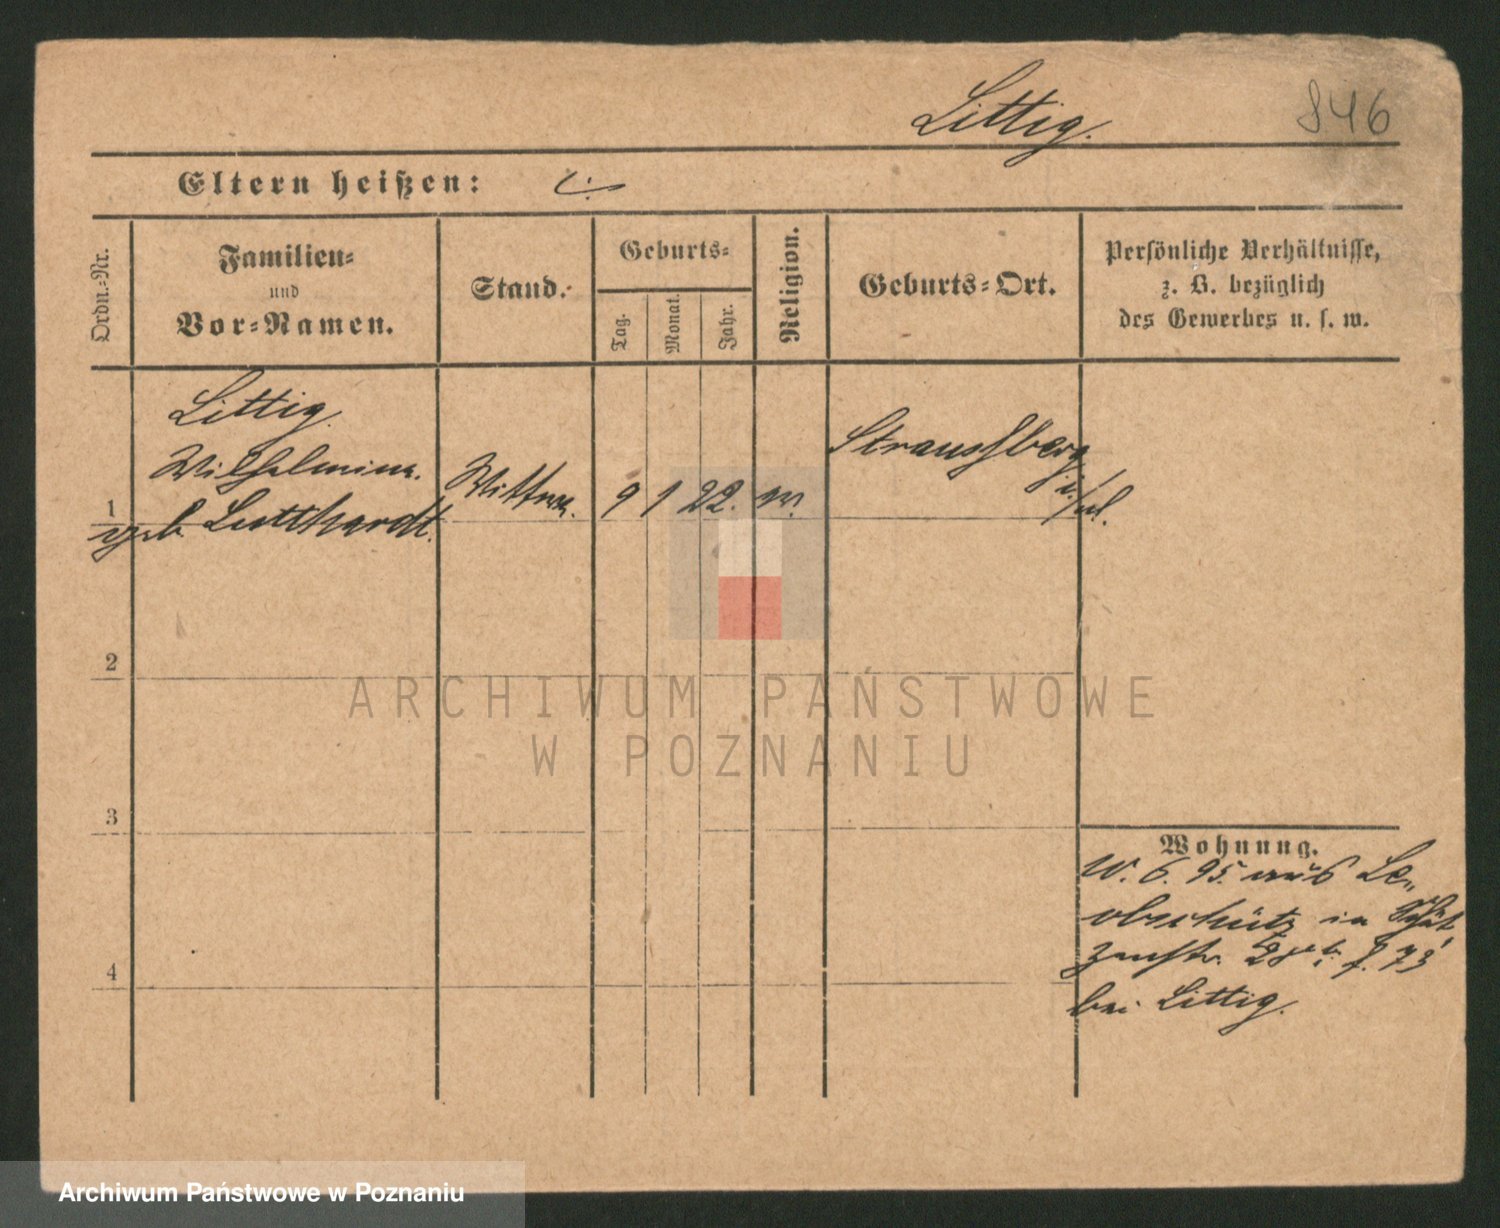 Littig.
846
Eltern heißen:
Ordn.-Nr.
Familien-
und
Vor-Namen.
Stand.
Geburts-
Tag.
Monat.
Jahr.
Religion.
Geburts-Ort.
Persönliche Verhältnisse,
z. B. bezüglich
des Gewerbes u. s. w.
1
Littig.
Wilhelmine.
geb. Lutthardt.
Wittwe.
9 1 22.
Straussberg
2
3
4
Wohnung.
6. 95. aus Le-
obschütz in Schüt
zenstr. 28
bei Littig.
ARCHIWUM PAŃSTWOWE
W POZNANIU
Archiwum Państwowe w Poznaniu